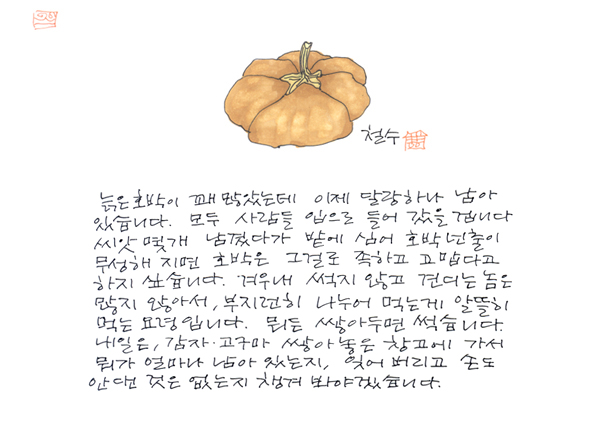 철수
늙은호박이 꽤 많았는데 이제 달랑하나 남아
있습니다. 모두 사람들 입으로 들어 갔을겁니다
씨앗 몇개 남겼다가 밭에 심어 호박넌출이
무성해 지면 호박은 그걸로 족하고 고맙다고
하지 싶습니다. 겨우내 썩지 않고 견디는 놈은
많지 않아서, 부지런히 나누어 먹는게 알뜰히
먹는 요령입니다. 뭐든 쌓아두면 썩습니다.
내일은, 감자·고구마 쌓아 놓은 창고에 가서
뭐가 얼마나 남아 있는지, 잊어 버리고 손도
안댄 것은 없는지 챙겨 봐야겠습니다.